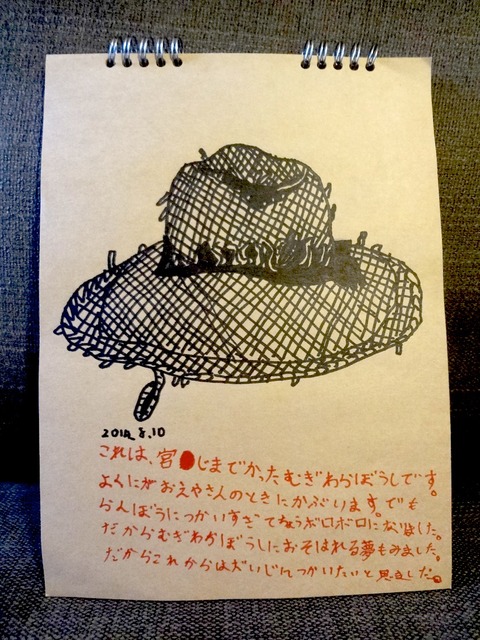 2014 8.10
これは、宮●じまでかったむぎわらぼうしです。
よくにがおえやさんのときにかぶります。でも
らんぼうにつかいすぎてもうボロボロになりました。
だからむぎわらぼうしにおそはれる夢もみました。
だからこれからはだいじにつかいたいと